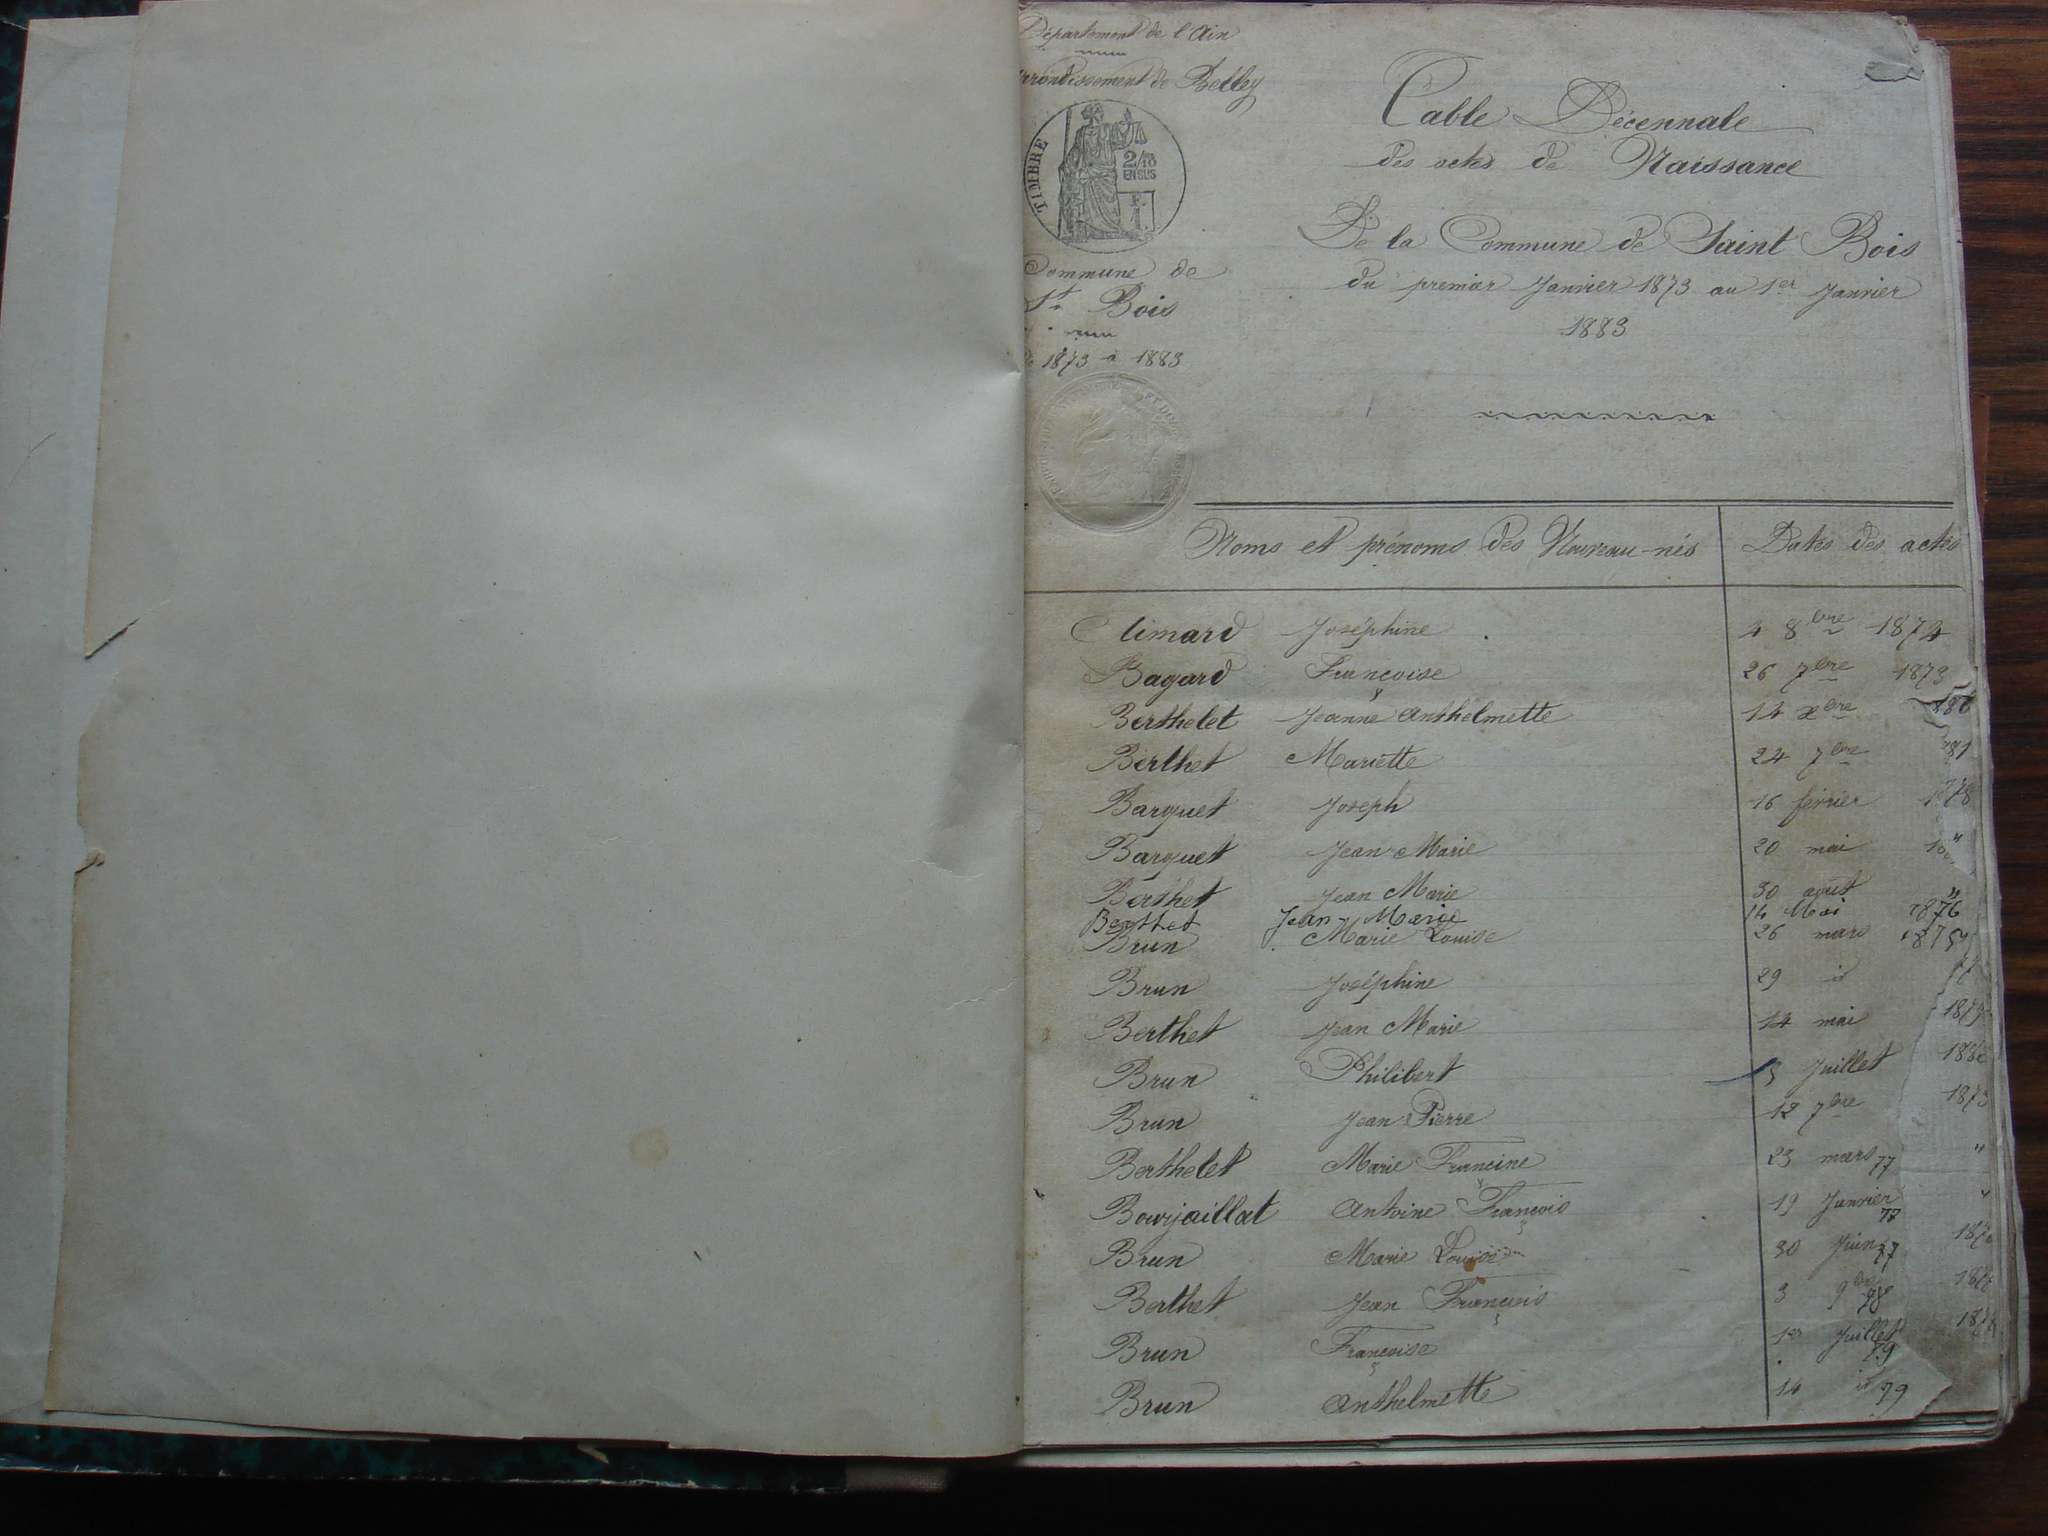 Département de l'Ain
Arrondissement de Belley
TIMBRE
2/10
EN SUS
F.
1
Commune de
St Bois
De 1873 à 1883
Table Décennale
des actes de Naissance
De la Commune de Saint Bois
du premier Janvier 1873 au 1er Janvier
1883
Noms et prénoms des Nouveau-nés Dates des actes
Joséphine 4 8bre 1874
Bagard Françoise 26 7bre 1873
Berthelet Jeanne Anthelmette 14 xbre
Berthet Mariette 24 7bre
Barquet Joseph 16 février 1878
Barquet Jean Marie 20 mai "
Berthet Jean Marie 30 août "
Berthet Jean-Marie 14 Mai 1876
Brun Marie Louise 26 mars
Brun Joséphine 29 id
Berthet Jean Marie 14 mai
Brun Philibert 5 Juillet
Brun Jean Pierre 12 7bre 1873
Berthelet Marie Francine 23 mars 77 "
Bourjaillat Antoine François 19 Janvier "
Brun Marie Louise 30 Juin 77
Berthet Jean François 3 9bre 78
Brun Françoise 1er Juillet 79
Brun Anthelmette 14 id 79